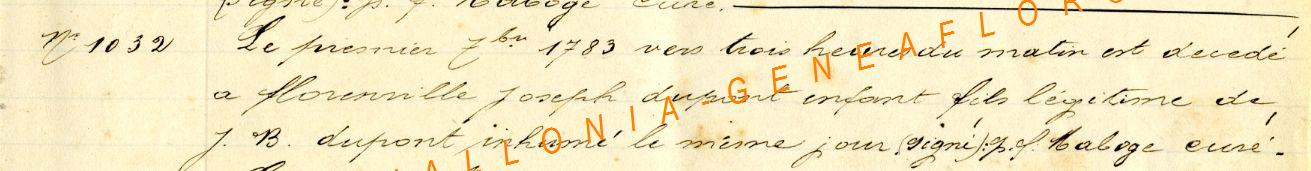 (signé): p. f. Maboge curé.
N° 1032 Le premier 7bre 1783 vers trois heures du matin est decedé
a florenville Joseph dupont enfant fils légitime de
J. B. dupont inhumé le même jour (signé): p. f. Maboge curé.
WALLONIA-GENEAFLORE